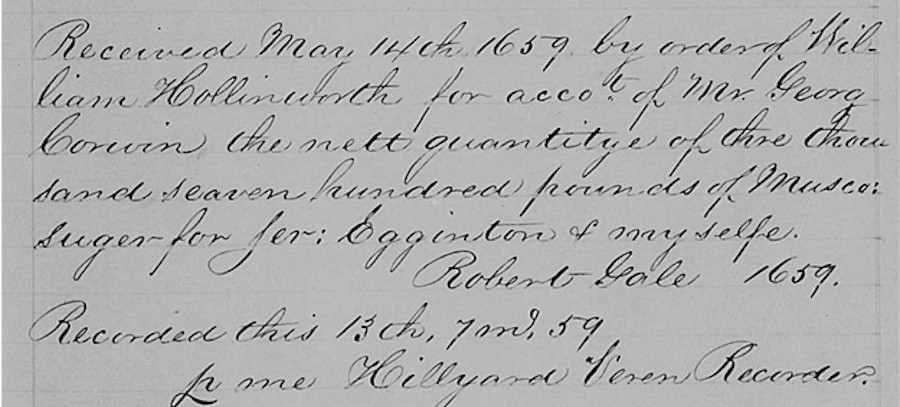 Received May 14th 1659. by order of Wil-
liam Hollinworth for accot. of Mr. Georg
Corwin the nett quantitye of thre thou
sand seaven hundred pounds of Musco:
suger for Jer: Egginton & my selfe.
Robert Gale 1659.
Recorded this 13th, 7 mo, 59
p me Hillyard Veren Recorder.